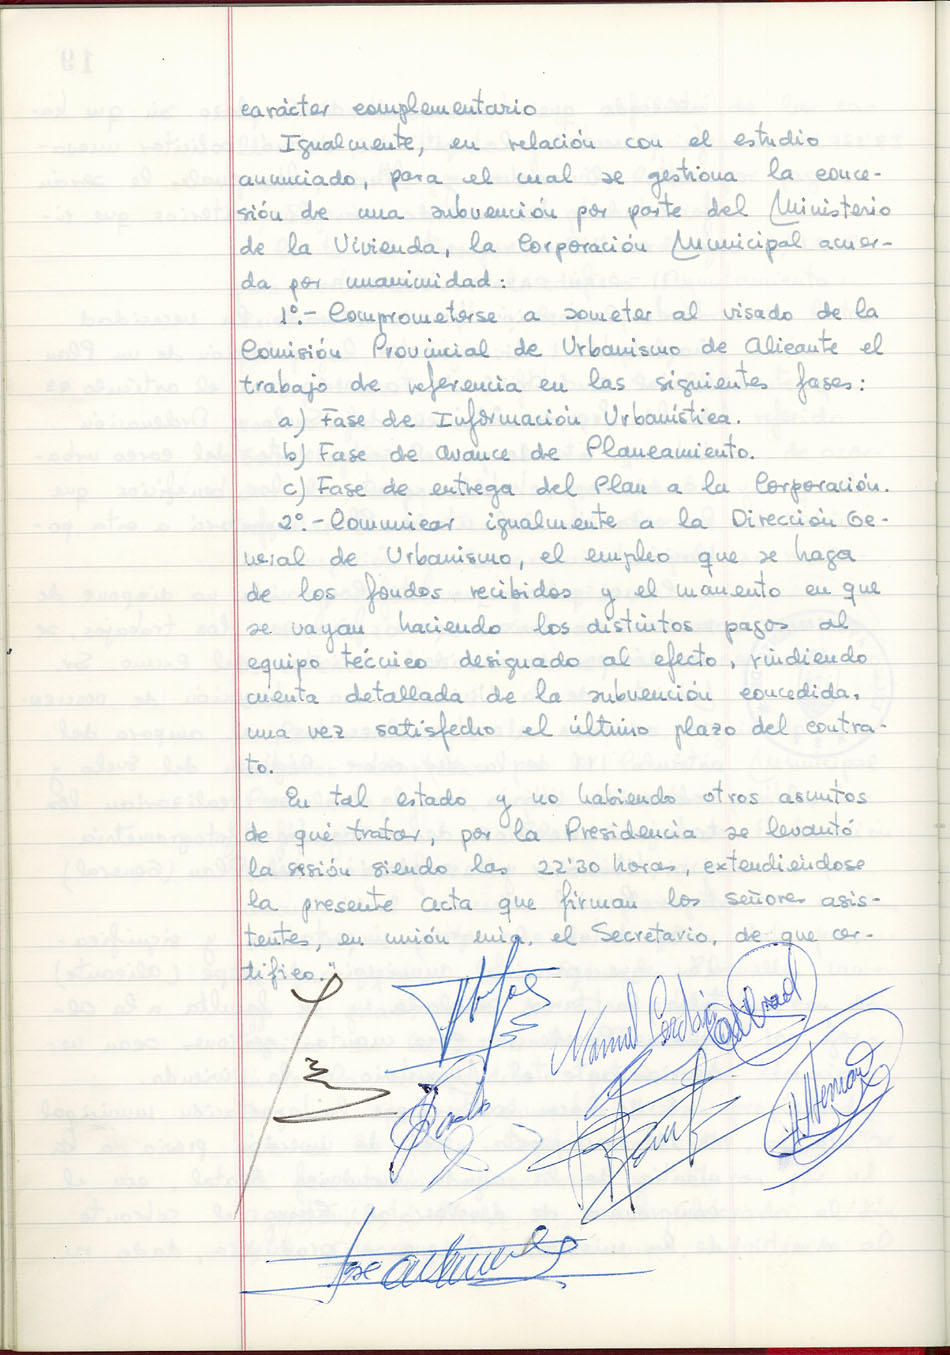 carácter complementario
Igualmente, en relación con el estudio
anunciado, para el cual se gestiona la conce-
sión de una subvención por parte del Ministerio
de la Vivienda, la Corporación Municipal acuer-
da por unanimidad:
1º.- Comprometerse a someter al visado de la
Comisión Provincial de Urbanismo de Alicante el
trabajo de referencia en las siguientes fases:
a) Fase de Información Urbanística.
b) Fase de Avance de Planeamiento.
c) Fase de entrega del Plan a la Corporación.
2º.- Comunicar igualmente a la Dirección Ge-
neral de Urbanismo, el empleo que se haga
de los fondos recibidos y el momento en que
se vayan haciendo los distintos pagos al
equipo técnico designado al efecto, rindiendo
cuenta detallada de la subvención concedida,
una vez satisfecho el último plazo del contra-
to.
En tal estado y no habiendo otros asuntos
de que tratar, por la Presidencia se levantó
la sesión siendo las 22'30 horas, extendiéndose
la presente acta que firman los señores asis-
tentes, en unión mía, el Secretario, de que cer-
tifico."
Manuel
José